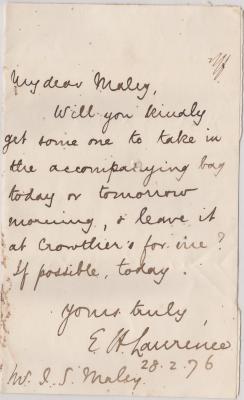 My dear Maley,
Will you kindly
get some one to take in
the accompanying bag
today or tomorrow
morning, & leave it
at Crowther's for me?
If possible, today.
Yours truly,
E H Lawrence
28.2.76
Mr. I. S. Maley.